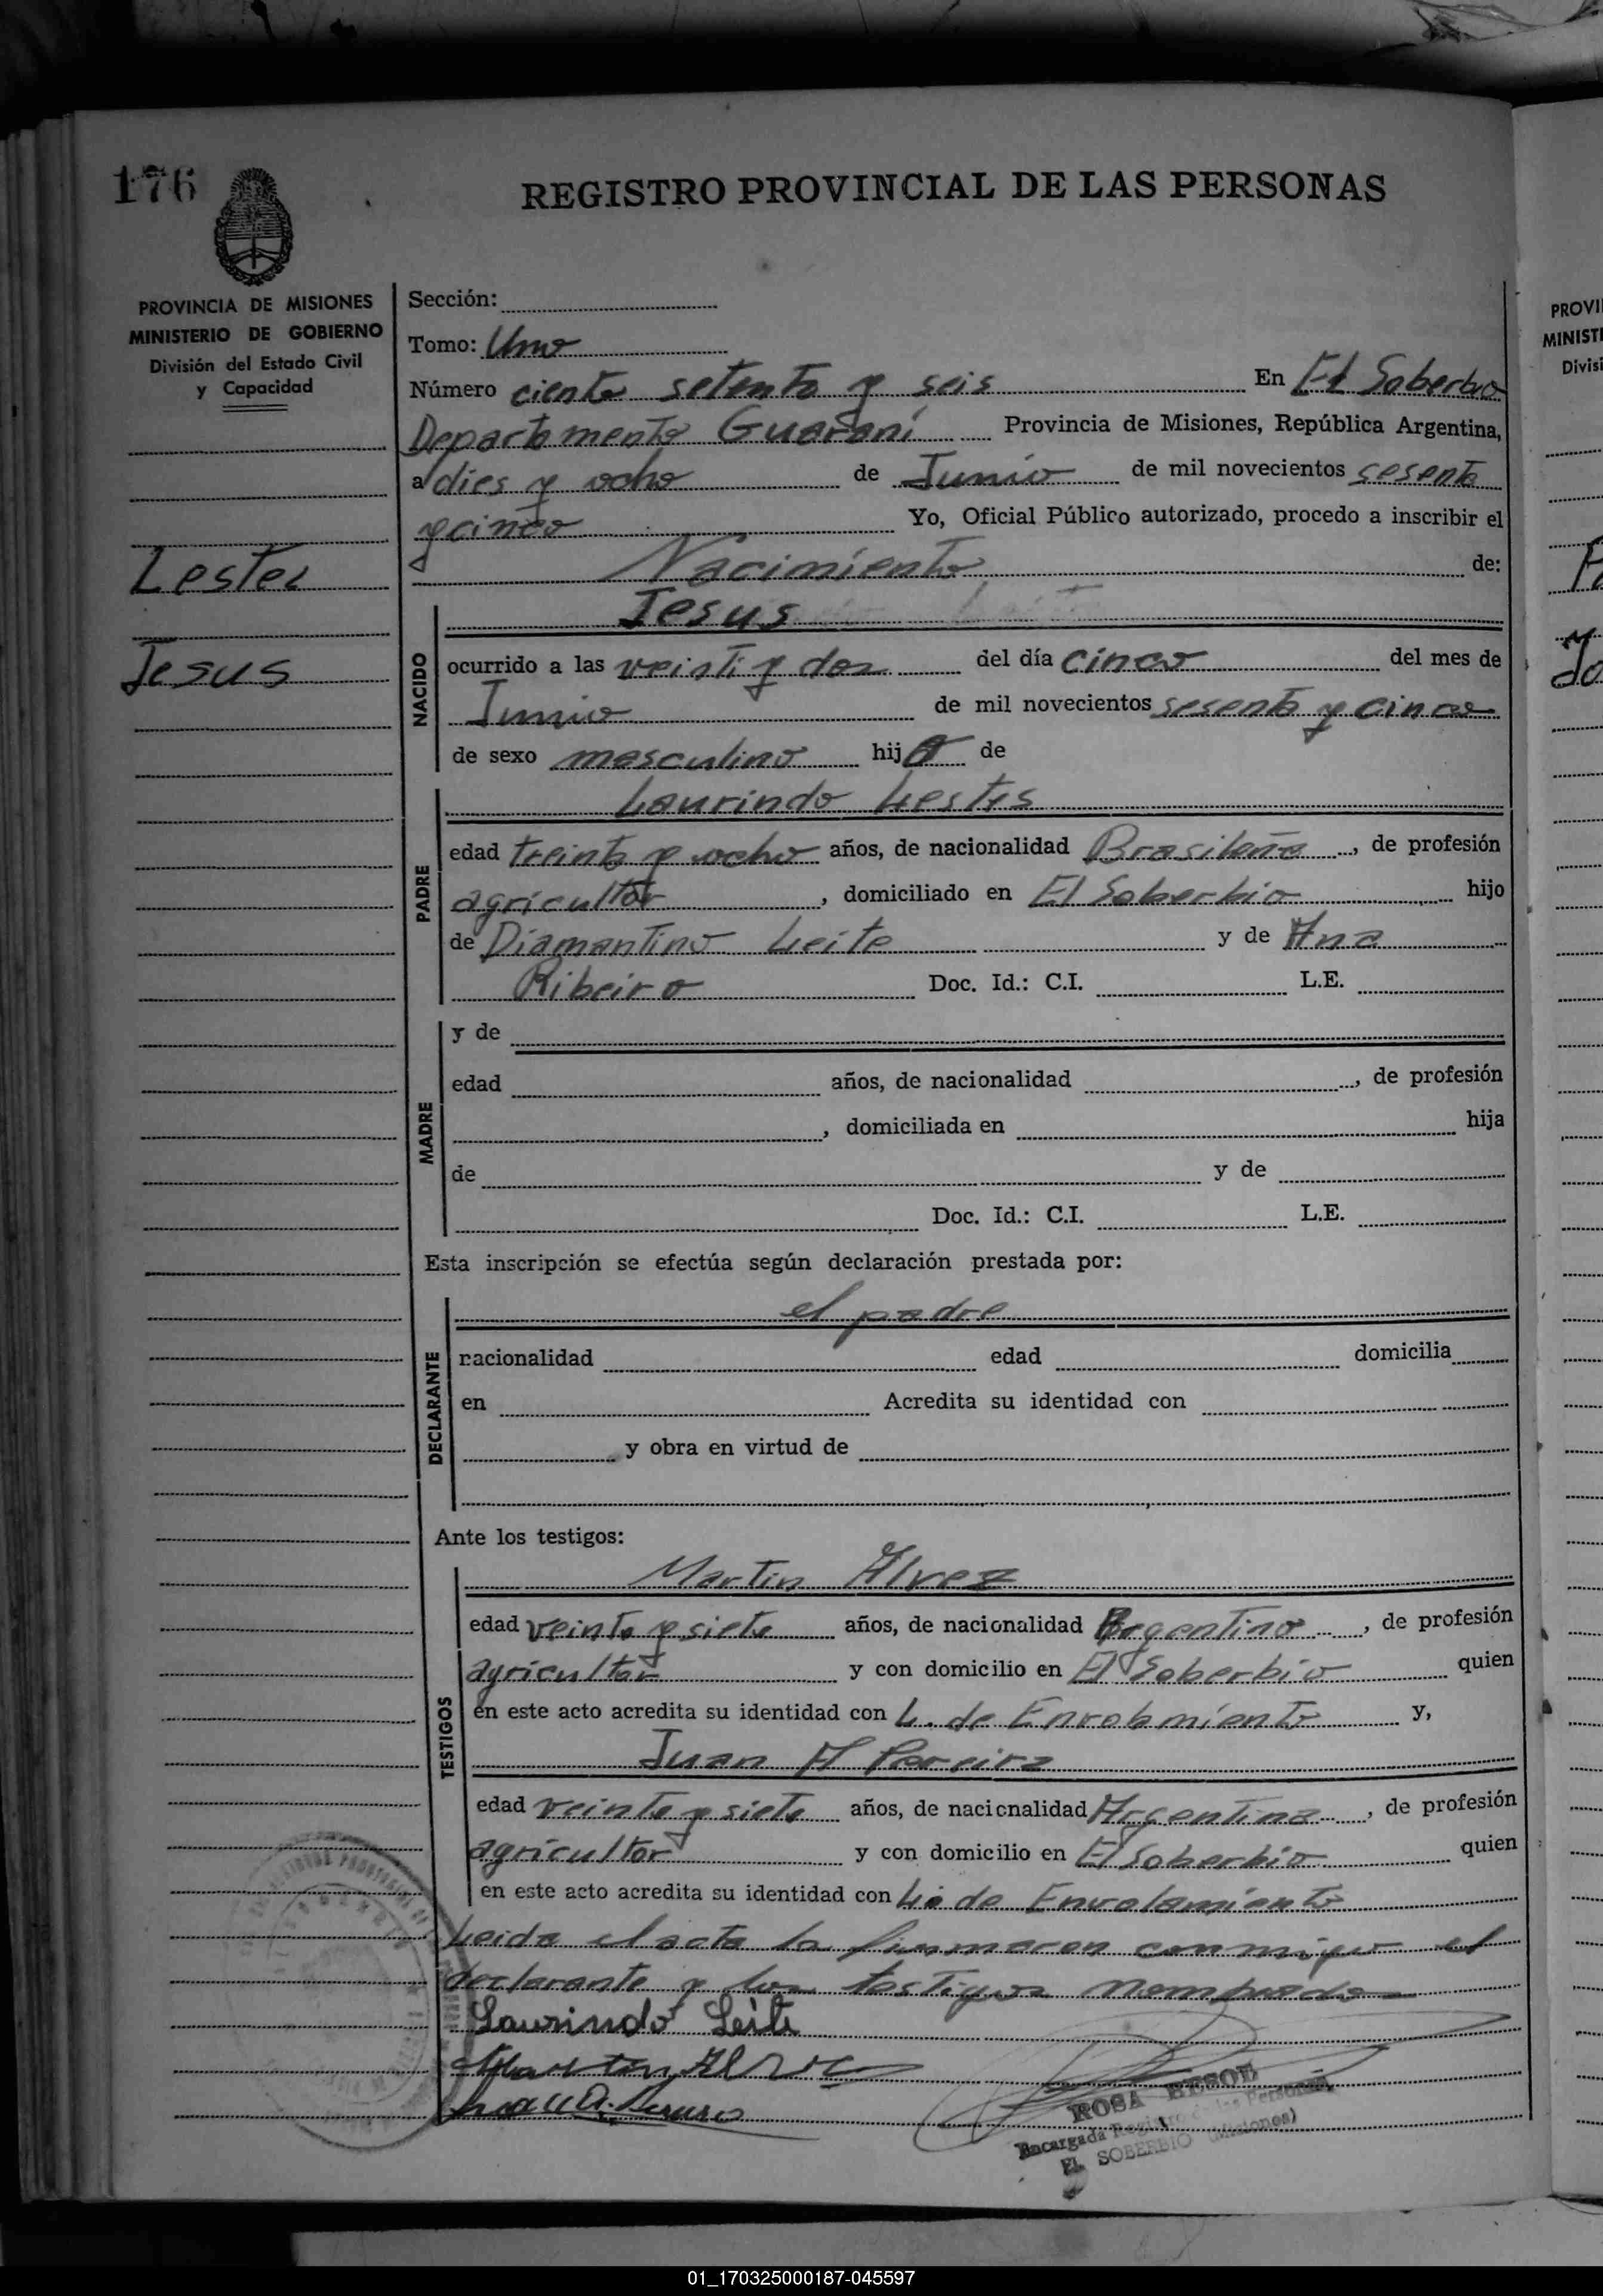 176
REGISTRO PROVINCIAL DE LAS PERSONAS
PROVINCIA DE MISIONES
MINISTERIO DE GOBIERNO
División del Estado Civil
y Capacidad
Lestes
Jesus
Sección:
Tomo: Uno
Número ciento setenta y seis En El Soberbio
Departamento Guaraní Provincia de Misiones, República Argentina,
a dies y ocho de Junio de mil novecientos sesenta
y cinco Yo, Oficial Público autorizado, procedo a inscribir el
Nacimiento de:
NACIDO
Jesus
ocurrido a las veinti y dos del día cinco del mes de
Junio de mil novecientos sesenta y cinco
de sexo masculino hijo de
PADRE
Laurindo Lestes
edad treinta y ocho años, de nacionalidad Brasileña, de profesión
agricultor, domiciliado en El Soberbio hijo
de Diamantino Leite y de Ana
Ribeiro Doc. Id.: C.I. L.E.
MADRE
y de
edad años, de nacionalidad , de profesión
, domiciliada en hija
de y de
Doc. Id.: C.I. L.E.
Esta inscripción se efectúa según declaración prestada por:
DECLARANTE
el padre
nacionalidad edad domicilia
en Acredita su identidad con
y obra en virtud de
Ante los testigos:
TESTIGOS
Martin Alvez
edad veinte y siete años, de nacionalidad Argentino, de profesión
agricultor y con domicilio en El Soberbio quien
en este acto acredita su identidad con L. de Enrolamiento y,
Juan A Pereira
edad veinte y siete años, de nacionalidad Argentina, de profesión
agricultor y con domicilio en El Soberbio quien
en este acto acredita su identidad con Li de Enrolamiento
Leida el acta la firmaron conmigo el
declarante y los testigos nombrados
Laurindo Leite
Martin Alvez
ROSA
Encargada Registro de las Personas
EL SOBERBIO (Misiones)
PROVI
MINISTI
Divisi
01_170325000187-045597